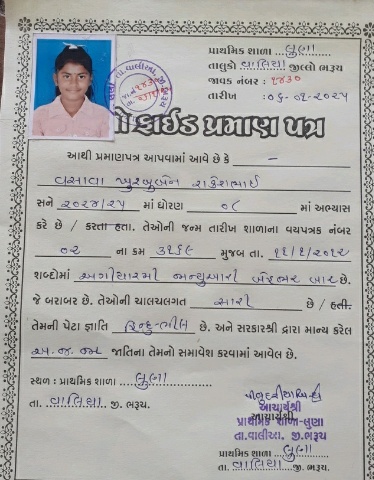 પ્રાથમિક શાળા લુણા
તાલુકો વાલિયા જીલ્લો ભરૂચ
જાવક નંબર : ૧૪૩૦
તારીખ : ૦૬-૦૧-૨૦૨૫
બોનોફાઈડ પ્રમાણ પત્ર
આથી પ્રમાણપત્ર આપવામાં આવે છે કે
વસાવા ખુશ્બુબેન રાકેશભાઈ
સને ૨૦૨૪/૨૫ માં ધોરણ ૦૮ માં અભ્યાસ
કરે છે / કરતા હતા. તેઓની જન્મ તારીખ શાળાના વયપત્રક નંબર
૦૨ ના ક્રમ ૩૧૬૯ મુજબ તા. ૧૧/૧/૨૦૧૨
શબ્દોમાં અગીયારમી જાન્યુઆરી બેહજાર બાર છે.
જે બરાબર છે. તેઓની ચાલચલગત સારી છે / હતી.
તેમની પેટા જ્ઞાતિ હિન્દુ-ભીલ છે. અને સરકારશ્રી દ્વારા માન્ય કરેલ
અ.જ.જા જાતિના તેમનો સમાવેશ કરવામાં આવેલ છે.
સ્થળ : પ્રાથમિક શાળા લુણા
તા. વાલિયા જી. ભરૂચ.
આચાર્યશ્રી
આચાર્યશ્રી
પ્રાથમિક શાળા-લુણા
તા.વાલીઆ. જી.ભરૂચ
પ્રાથમિક શાળા લુણા
તા. વાલિયા જી. ભરૂચ.